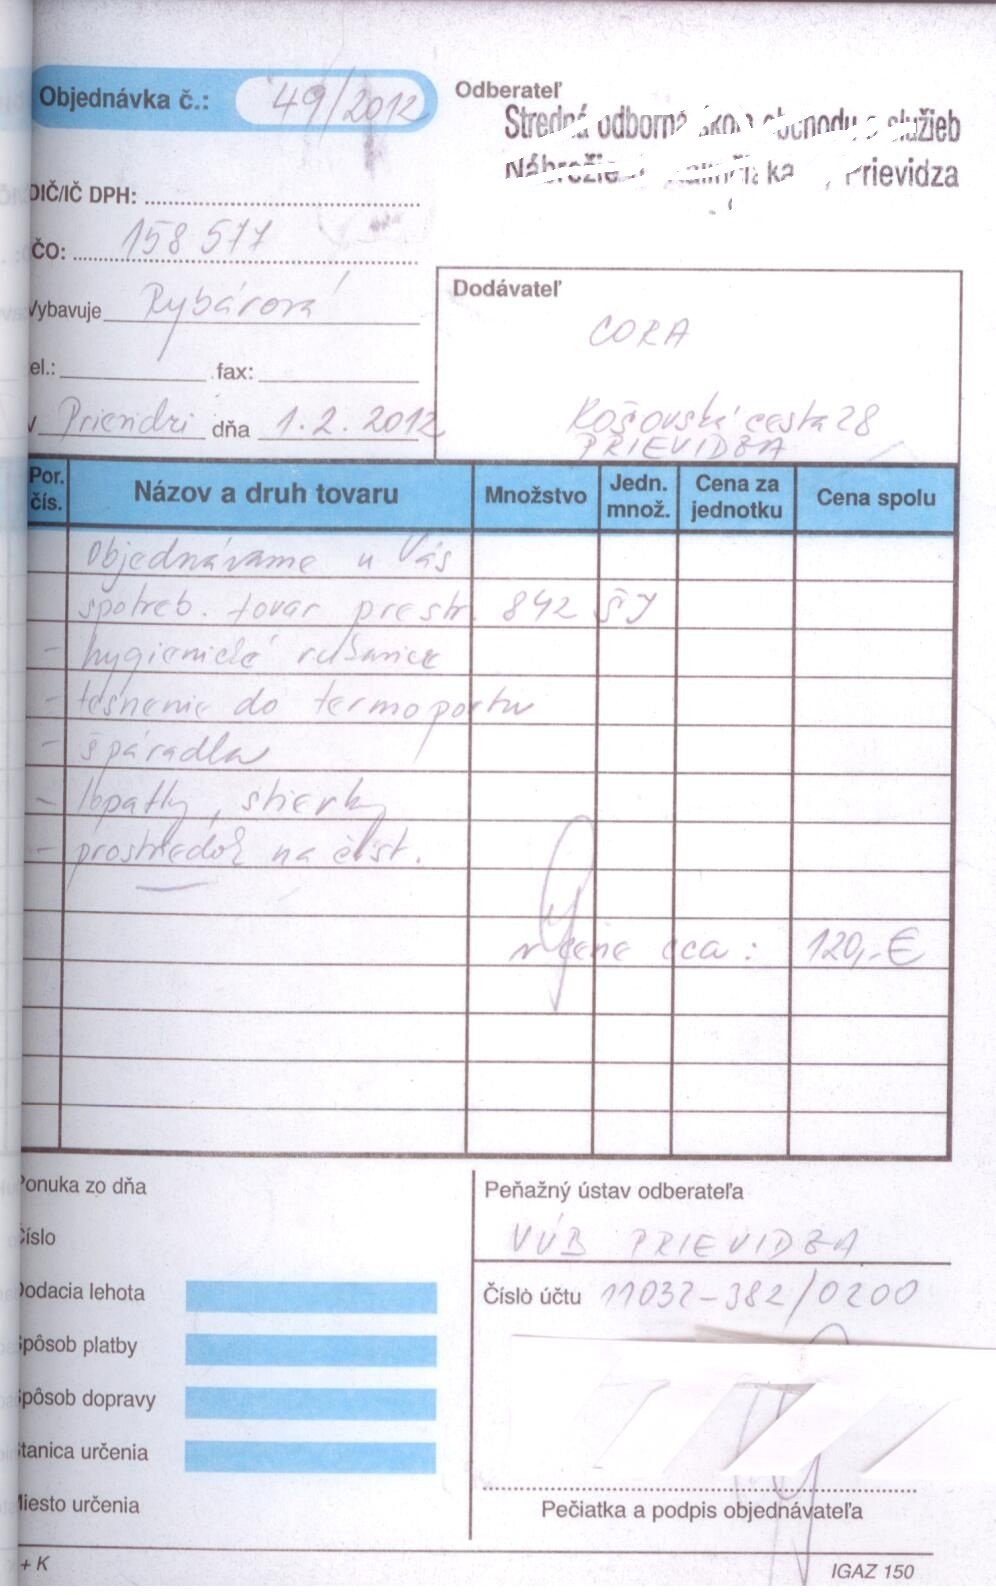 Objednávka č.: 49/2012
Odberateľ
Stredná odborná škola obchodu a služieb
Nábrežie Prievidza
DIČ/IČ DPH:
IČO: 158 577
Vybavuje Rybárová
tel.: fax:
V Prievidzi dňa 1.2.2012
Dodávateľ
CORA
Košovská cesta 28
PRIEVIDZA
Por. čís. Názov a druh tovaru Množstvo Jedn. množ. Cena za jednotku Cena spolu
Objednávame u Vás
spotreb. tovar pre str. 842 ŠJ
- hygienické rušanice
- tesnenie do termoportu
- špáradla
- lopatky, stierky
- prostriedok na čist.
v cene cca: 120,-€
Ponuka zo dňa
Číslo
Dodacia lehota
Spôsob platby
Spôsob dopravy
Stanica určenia
Miesto určenia
Peňažný ústav odberateľa
VÚB PRIEVIDZA
Číslo účtu 11032-382/0200
Pečiatka a podpis objednávateľa
+ K
IGAZ 150